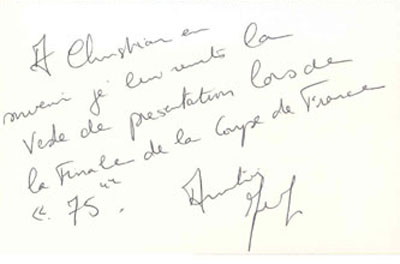 A Christian en
souvenir je lui remets la
Veste de presentation lors de
la Finale de la Coupe de France
« 75 ".